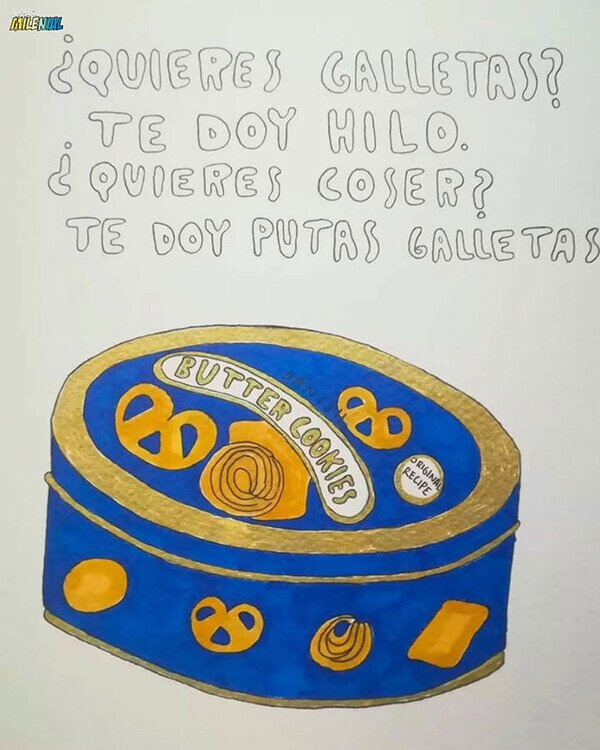 MILENIAL
¿QUIERES GALLETAS?
TE DOY HILO.
¿QUIERES COSER?
TE DOY PUTAS GALLETAS
DANISH
BUTTER COOKIES
ORIGINAL
RECIPE